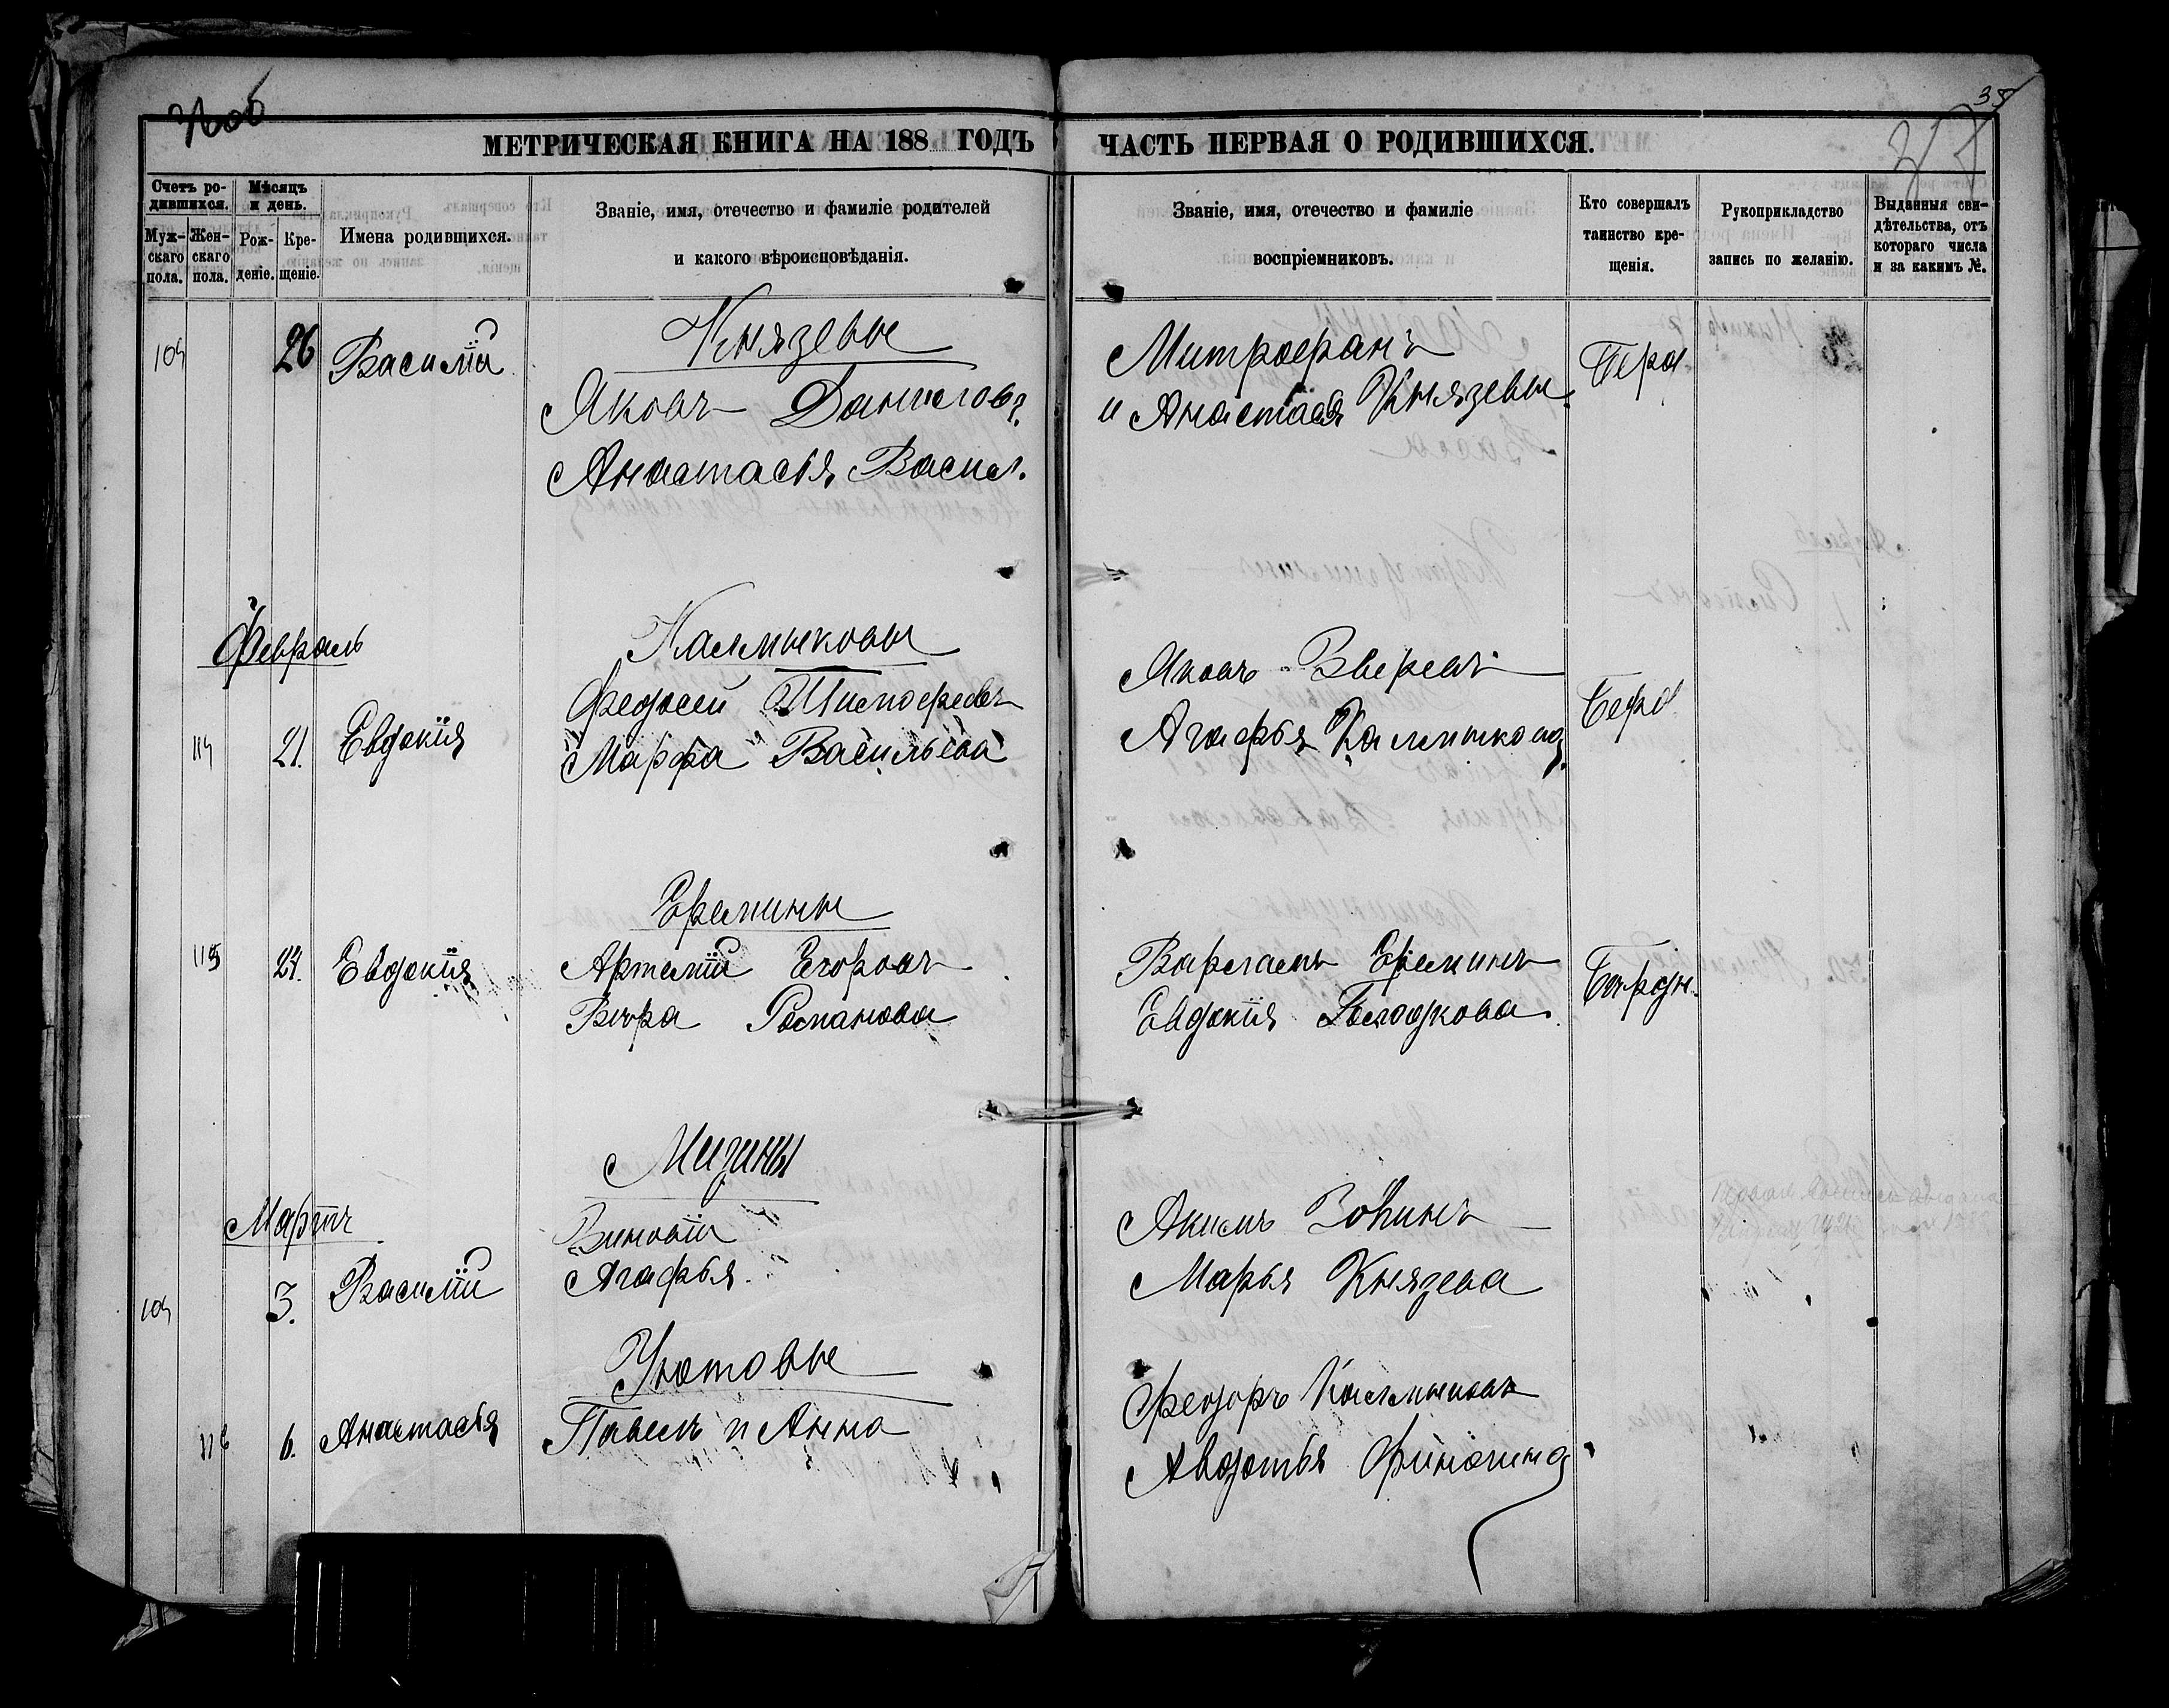 35
МЕТРИЧЕСКАЯ КНИГА НА 188 ГОДЪ
ЧАСТЬ ПЕРВАЯ О РОДИВШИХСЯ.
Счетъ ро-
дившихся.
Муж-
скаго
пола.
Жен-
скаго
пола.
Мѣсяцъ
и день.
Рож-
деніе.
Кре-
щеніе.
Имена родившихся.
Званіе, имя, отечество и фамиліе родителей
и какого вѣроисповѣданія.
Званіе, имя, отечество и фамиліе
воспріемниковъ.
Кто совершалъ
таинство кре-
щенія.
Рукоприкладство
запись по желанію.
Выданныя сви-
дѣтельства, отъ
котораго числа
и за какимъ №.
26
Василій
Князевы
Яковъ Данилов.
Анастасія Васил.
Митрофанъ
и Анастасія Князевы
Февраль
21.
Евдокія
Калмыковы
Федосей Тимофеевъ
Марфа Васильева
Яковъ Зверевъ
Агафья Калмыкова
115
24.
Евдокія
Еремины
Артемій Егоровъ
Вѣра Романова
Варлаамъ Ереминъ
Евдокія Голодкова.
Мартъ
3.
Василій
Мизины
Зиновій
Агафья.
Акимъ Зобнинъ
Марья Князева
116
6.
Анастасія
Уютовы
Павелъ и Анна
Феодоръ Калмыковъ
Авдотья Финогина